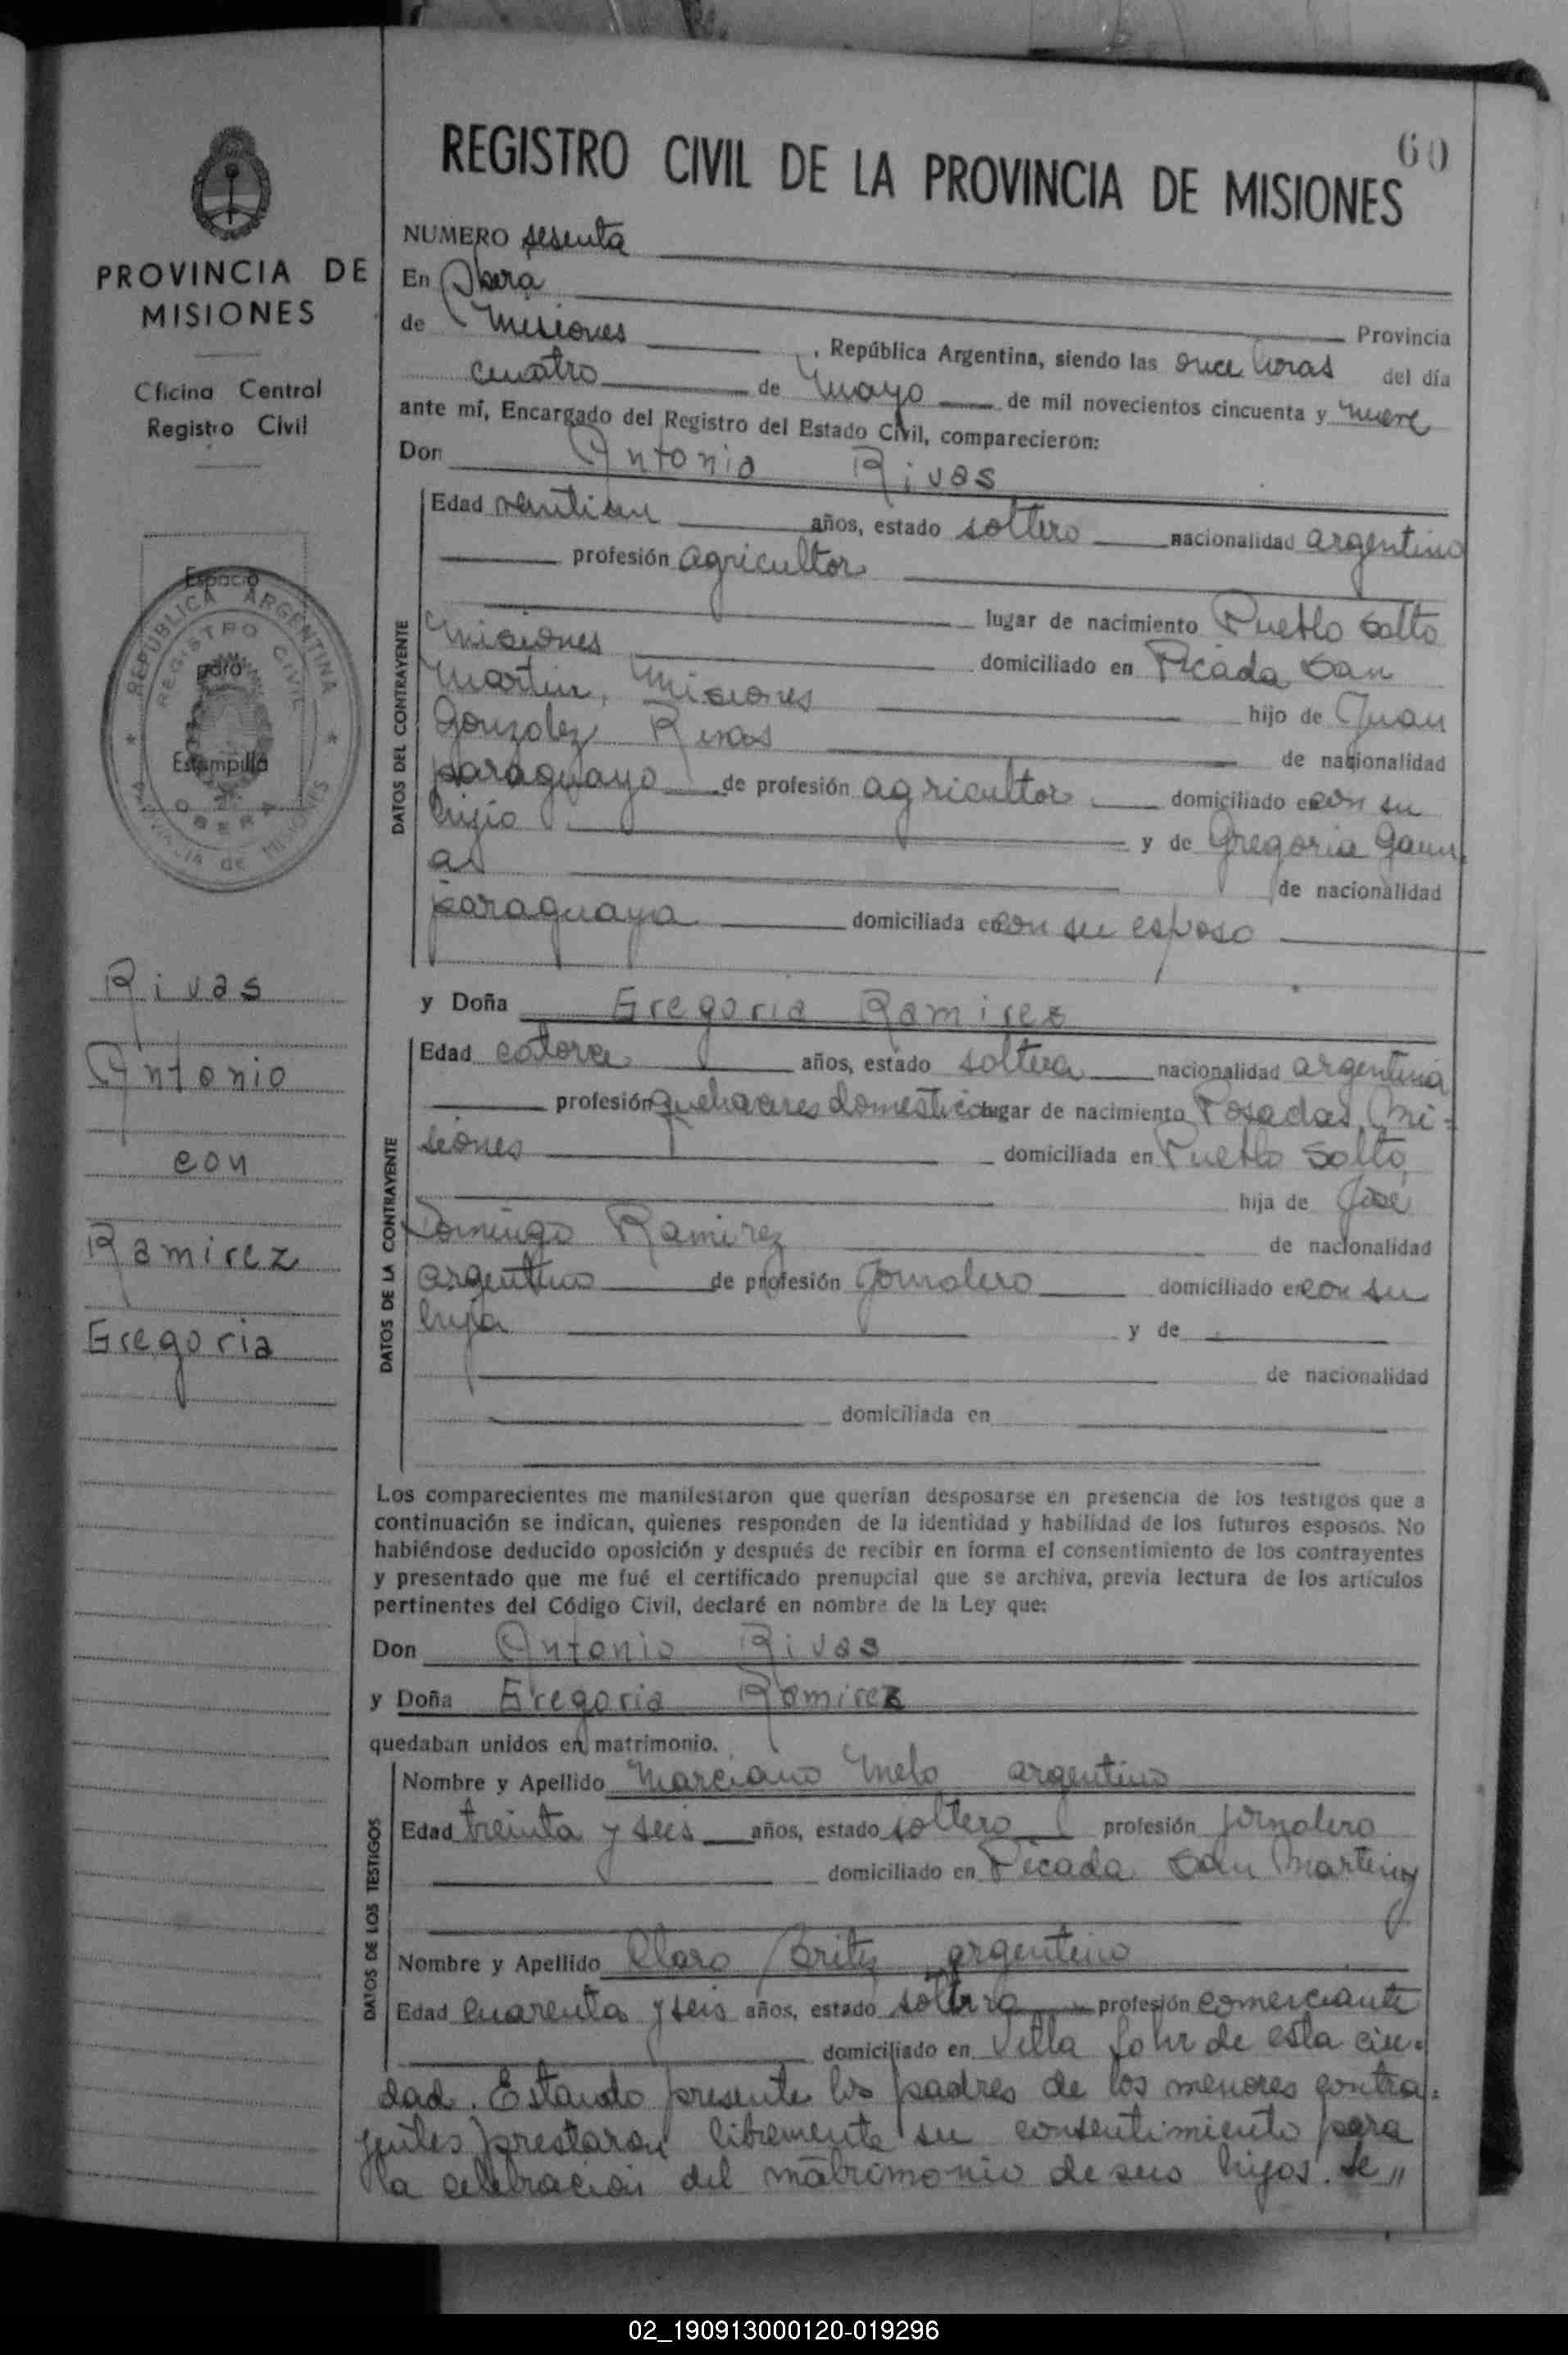 60
REGISTRO CIVIL DE LA PROVINCIA DE MISIONES
PROVINCIA DE
MISIONES
Oficina Central
Registro Civil
Espacio
para
Estampilla
REPUBLICA ARGENTINA
REGISTRO CIVIL
OBERA
PROVINCIA DE MISIONES
Rivas
Antonio
con
Ramirez
Gregoria
NUMERO sesenta
En Obera
Provincia
de Misiones , República Argentina, siendo las once horas del día
cuatro de Mayo de mil novecientos cincuenta y nueve
ante mí, Encargado del Registro del Estado Civil, comparecieron:
Don Antonio Rivas
DATOS DEL CONTRAYENTE
Edad años, estado soltero nacionalidad argentino
profesión agricultor
lugar de nacimiento Pueblo Salto
Misiones domiciliado en Picada San
Martin, Misiones hijo de Juan
Gonzalez Rivas de nacionalidad
paraguayo de profesión agricultor domiciliado en con su
hijo y de Gregoria
de nacionalidad
paraguaya domiciliada en con su esposo
y Doña Gregoria Ramirez
DATOS DE LA CONTRAYENTE
Edad catorce años, estado soltera nacionalidad argentina
profesión quehaceres domesticos lugar de nacimiento Posadas, Mi=
siones domiciliada en Pueblo Salto
hija de José
Domingo Ramirez de nacionalidad
argentino de profesión Jornalero domiciliado en con su
hija y de
de nacionalidad
domiciliada en
Los comparecientes me manifestaron que querían desposarse en presencia de los testigos que a
continuación se indican, quienes responden de la identidad y habilidad de los futuros esposos. No
habiéndose deducido oposición y después de recibir en forma el consentimiento de los contrayentes
y presentado que me fué el certificado prenupcial que se archiva, previa lectura de los artículos
pertinentes del Código Civil, declaré en nombre de la Ley que:
Don Antonio Rivas
y Doña Gregoria Ramirez
quedaban unidos en matrimonio.
DATOS DE LOS TESTIGOS
Nombre y Apellido Marciano Melo argentino
Edad treinta y seis años, estado soltero profesión jornalero
domiciliado en Picada San Martin y
Nombre y Apellido Claro Britez argentino
Edad cuarenta y seis años, estado profesión comerciante
domiciliado en Villa de esta ciu-
dad. Estando presente los padres de los menores contra=
yentes prestaron libremente su consentimiento para
la celebracion del matrimonio de sus hijos. Se "
02_190913000120-019296